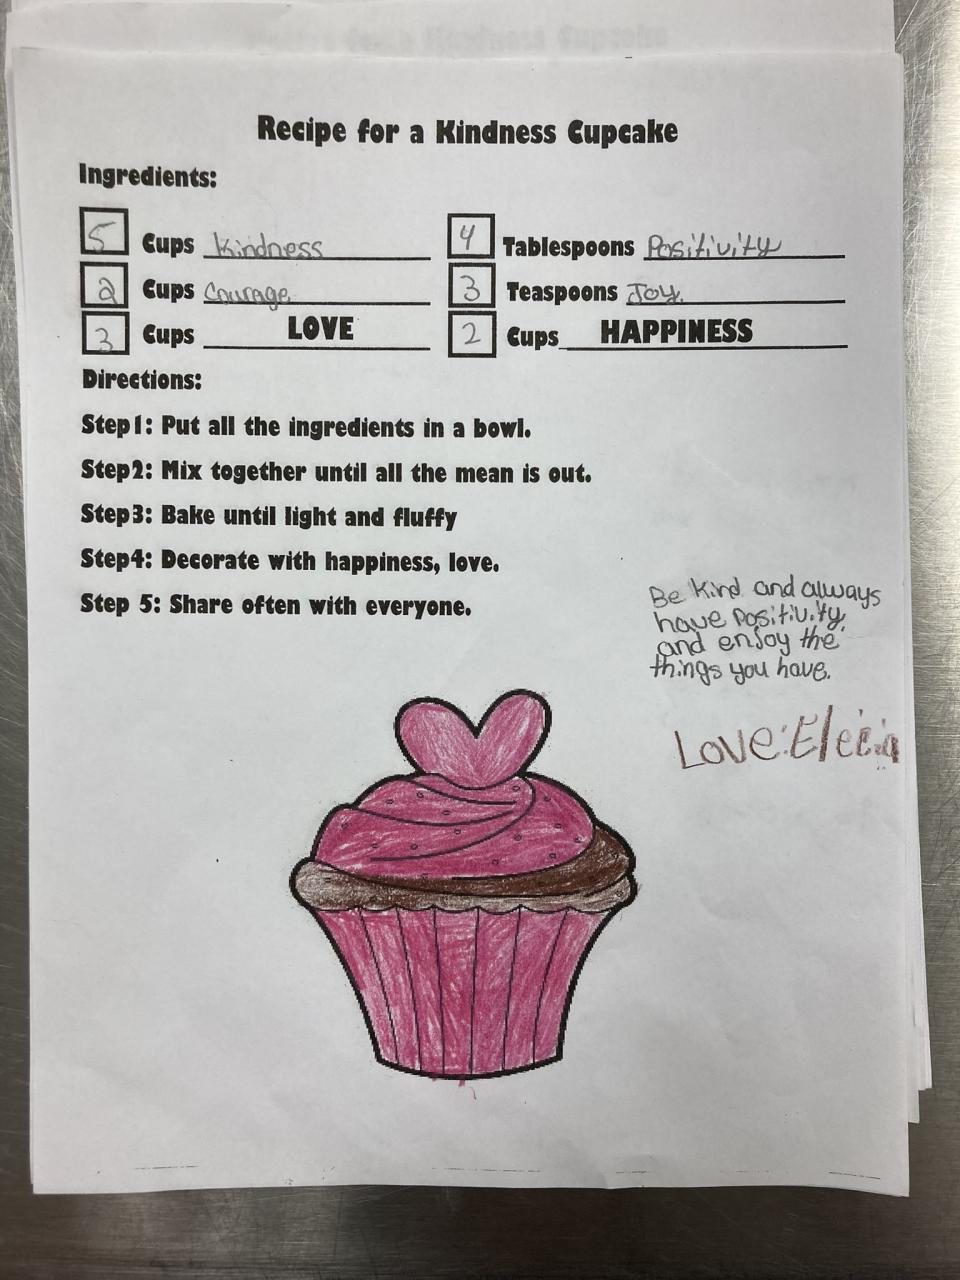 Recipe for a Kindness Cupcake
Ingredients:
5 Cups Kindness 4 Tablespoons Positivity
2 Cups Courage 3 Teaspoons Joy.
3 Cups LOVE 2 Cups HAPPINESS
Directions:
Step1: Put all the ingredients in a bowl.
Step2: Mix together until all the mean is out.
Step3: Bake until light and fluffy
Step4: Decorate with happiness, love.
Step 5: Share often with everyone.
Be Kind and always
have Positivity,
and enjoy the
things you have.
Love: Elecia